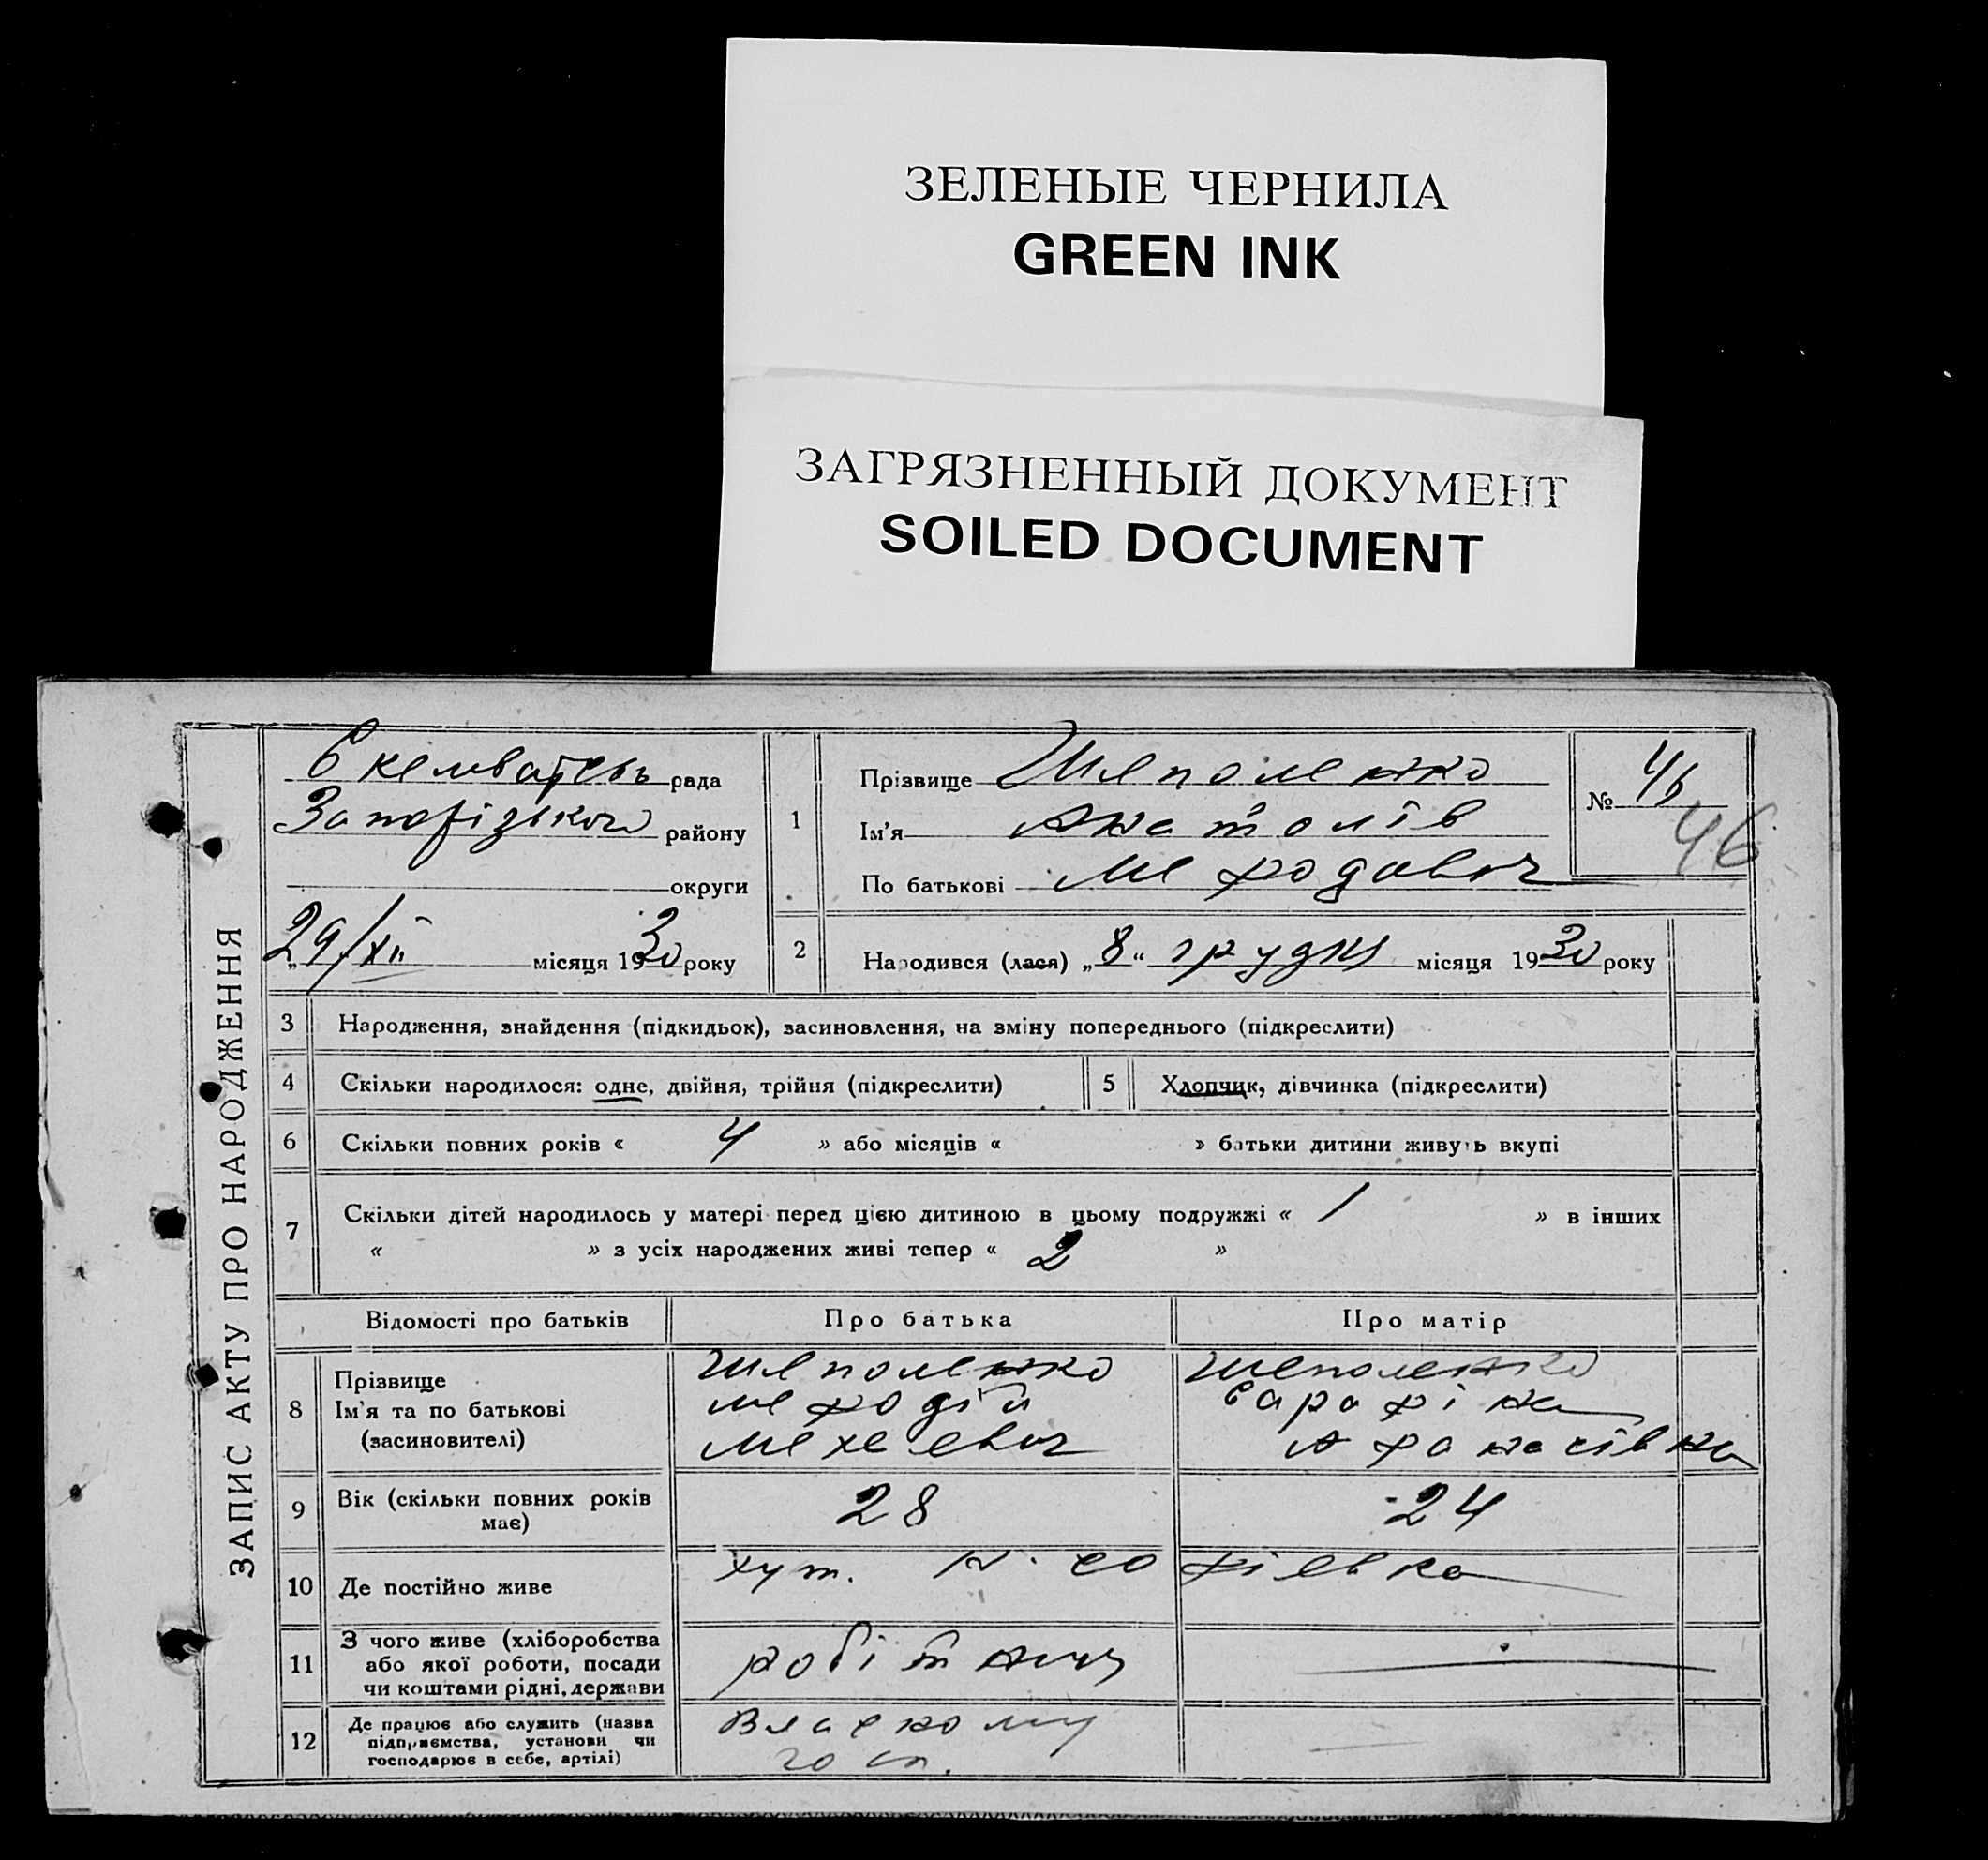 ЗЕЛЕНЫЕ ЧЕРНИЛА
GREEN INK
ЗАГРЯЗНЕННЫЙ ДОКУМЕНТ
SOILED DOCUMENT
ЗАПИС АКТУ ПРО НАРОДЖЕННЯ
рада
Запорізького району
округи
„29/XII місяця 1930 року
1
Прізвище Шаполенко
Ім'я Анатолів
По батькові Мефодович
№ 46
46
2
Народився (лася) „8“ грудня місяця 1930 року
3 Народження, знайдення (підкидьок), засиновлення, на зміну попереднього (підкреслити)
4 Скільки народилося: одне, двійня, трійня (підкреслити) 5 Хлопчик, дівчинка (підкреслити)
6 Скільки повних років « 4 » або місяців « » батьки дитини живуть вкупі
7 Скільки дітей народилось у матері перед цією дитиною в цьому подружжі « 1 » в інших
« » з усіх народжених живі тепер « 2 »
Відомості про батьків Про батька Про матір
8 Прізвище Шаполенко Шаполенко
Ім'я та по батькові Мефодій Сарафіна
(засиновителі) Афанасівна
9 Вік (скільки повних років має) 28 24
10 Де постійно живе хут. Н. Софіевка
11 З чого живе (хліборобства
або якої роботи, посади
чи коштами рідні, держави робітниц
12 Де працює або служить (назва
підприємства, установи чи
господарює в себе, артілі) Власному
госп.